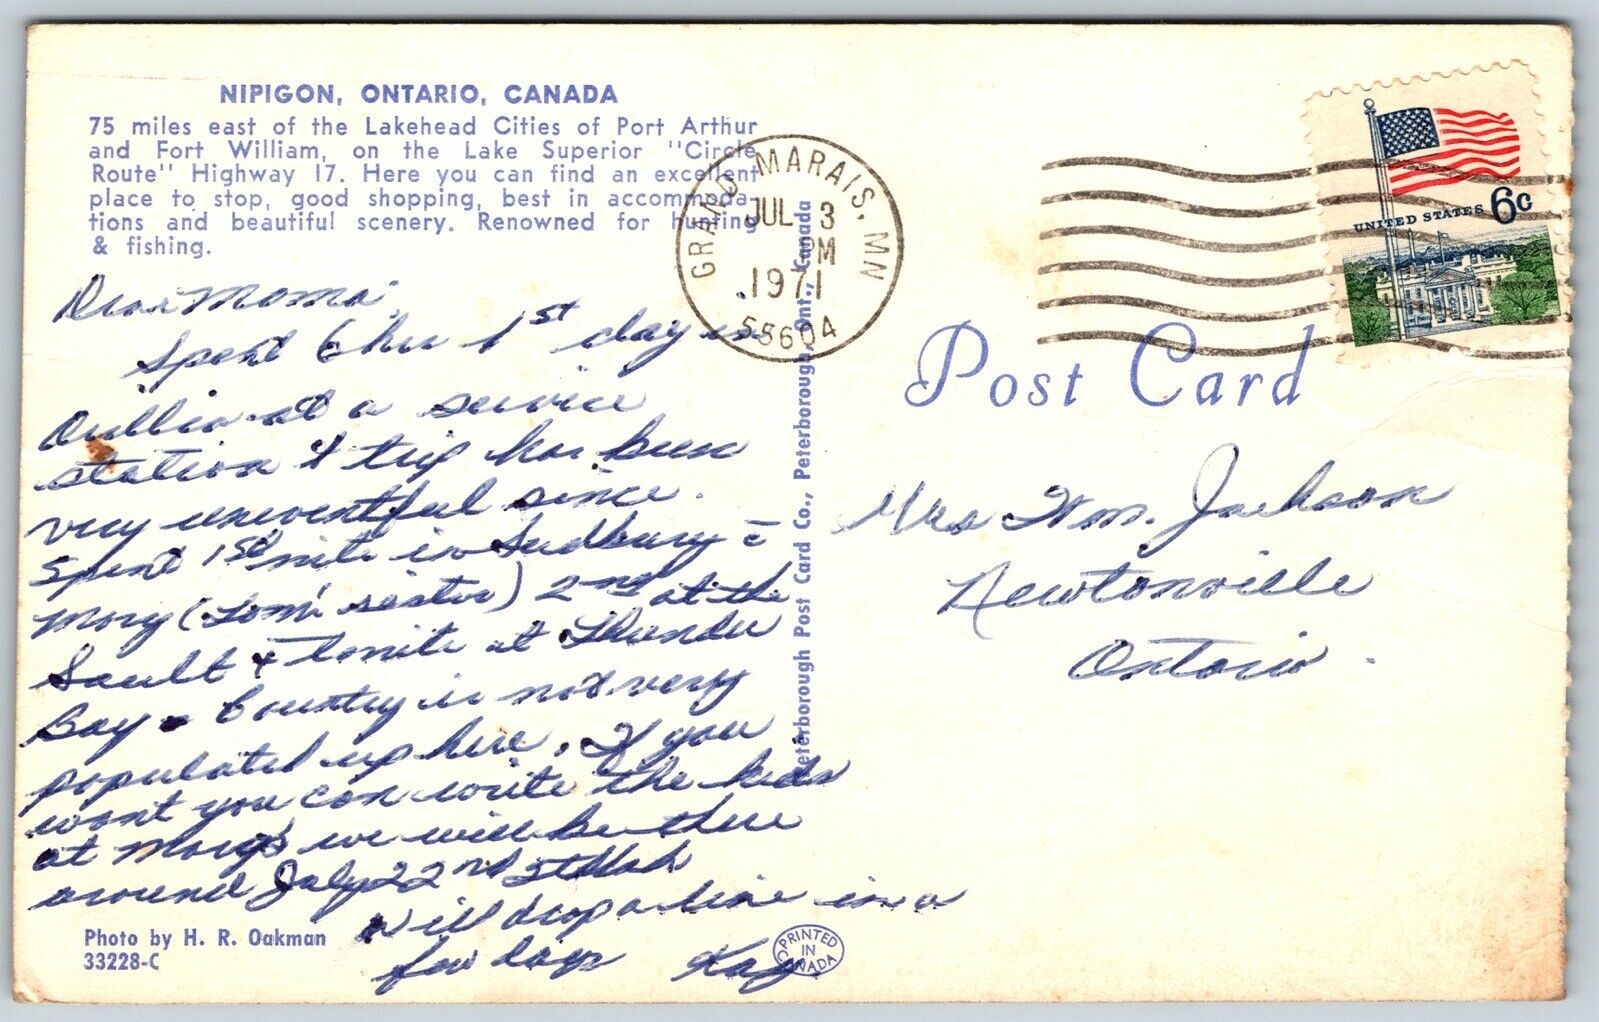 NIPIGON, ONTARIO, CANADA
75 miles east of the Lakehead Cities of Port Arthur
and Fort William, on the Lake Superior "Circle
Route" Highway 17. Here you can find an excellent
place to stop, good shopping, best in accommoda-
tions and beautiful scenery. Renowned for hunting
& fishing.
GRAND MARAIS, MN
JUL 3
PM
1971
55604
UNITED STATES 6c
Post Card
Dear Moma:
Spent 6 hrs 1st day in
Orillia at a service
station & trip has been
very uneventful since.
Spent 1st nite in Sudbury c
Mary (Tom's sister) 2nd at the
Sault & Tonite at Thunder
Bay. Country is not very
populated up here. If you
want you can write the kids
at Mary's we will be there
around July 22nd
Will drop a line in a
few days Kay
Mrs Wm. Jackson
Newtonville
Ontario.
Peterborough Post Card Co., Peterborough, Ont., Canada
Photo by H. R. Oakman
33228-C
PRINTED IN CANADA